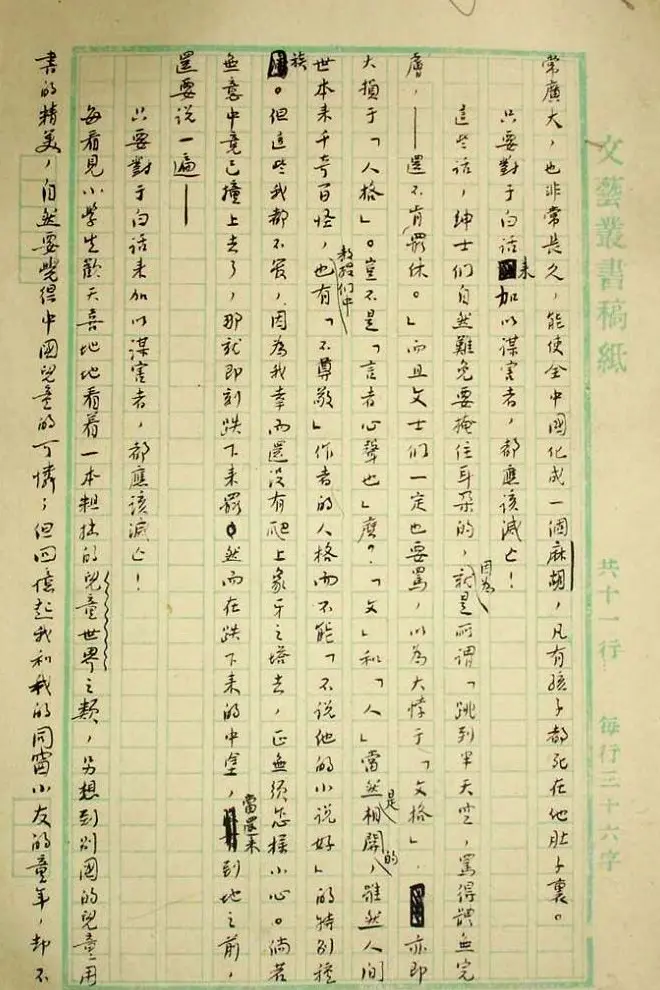 文藝叢書稿紙 共十一行 每行三十六字
常廣大，也非常長久，能使全中國化成一個麻胡，凡有孩子都死在他肚子裏。
只要對于白話來加以謀害者，都應該滅亡！
這些話，紳士們自然難免要掩住耳朵的，因為就是所謂「跳到半天空，罵得體無完
膚，——還不肯罷休。」而且文士們一定也要罵，以為大悖于「文格」，亦即
大損于「人格」。豈不是「言者心聲也」麼？「文」和「人」當然是相關的，雖然人間
世本來千奇百怪，教授們中也有「不尊敬」作者的人格而不能「不說他的小說好」的特別種
族。但這些我都不管，因為我幸而還沒有爬上象牙之塔去，正無須怎樣小心。倘若
無意中竟已撞上去了，那就即刻跌下來罷。然而在跌下來的中途，當還未到地之前，
還要說一遍——
只要對于白話來加以謀害者，都應該滅亡！
每看見小學生歡天喜地地看着一本粗拙的兒童世界之類，另想到別國的兒童用
書的精美，自然要覺得中國兒童的可憐；但回憶起我和我的同窗小友的童年，却不